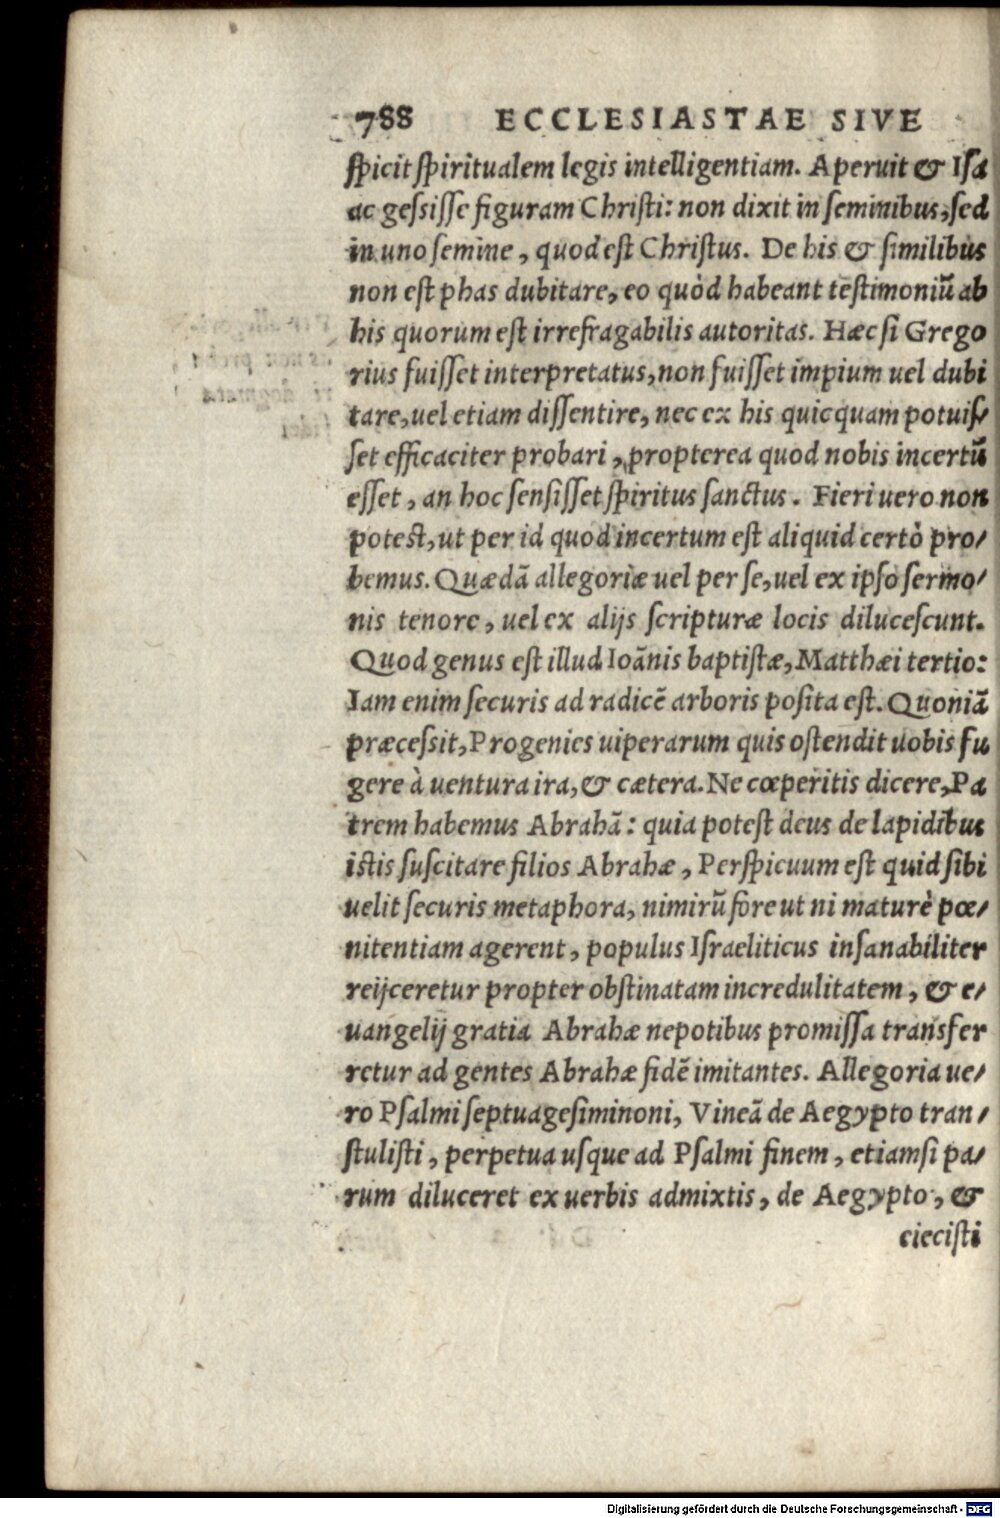 788 ECCLESIASTAE SIVE
ſpicit ſpiritualem legis intelligentiam. Aperuit & Iſa
ac geſsiſſe figuram Chriſti: non dixit in ſeminibus, ſed
in uno ſemine, quod eſt Chriſtus. De his & ſimilibus
non eſt phas dubitare, eo quòd habeant teſtimoniũ ab
his quorum eſt irrefragabilis autoritas. Hæc ſi Grego
rius fuiſſet interpretatus, non fuiſſet impium uel dubi
tare, uel etiam diſſentire, nec ex his quicquam potuiſ/
ſet efficaciter probari, propterea quod nobis incertũ
eſſet, an hoc ſenſiſſet ſpiritus ſanctus. Fieri uero non
potest, ut per id quod incertum eſt aliquid certò pro/
bemus. Quædã allegoriæ uel per ſe, uel ex ipſo ſermo/
nis tenore, uel ex alijs ſcripturæ locis diluceſcunt.
Quod genus eſt illud Ioãnis baptiſtæ, Matthæi tertio:
Iam enim ſecuris ad radicẽ arboris poſita eſt. Quoniã
præceſsit, Progenies uiperarum quis oſtendit uobis fu
gere à uentura ira, & cætera. Ne cœperitis dicere, Pa
trem habemus Abrahã: quia poteſt deus de lapidibus
istis ſuſcitare filios Abrahæ, Perſpicuum eſt quid ſibi
uelit ſecuris metaphora, nimirũ fore ut ni maturè pœ/
nitentiam agerent, populus Iſraeliticus inſanabiliter
reijceretur propter obſtinatam incredulitatem, & e/
uangelij gratia Abrahæ nepotibus promiſſa transfer
retur ad gentes Abrahæ fidẽ imitantes. Allegoria ue/
ro Pſalmi ſeptuageſiminoni, Vineã de Aegypto tran/
ſtuliſti, perpetua uſque ad Pſalmi finem, etiamſi pa/
rum diluceret ex uerbis admixtis, de Aegypto, &
eieciſti
Digitalisierung gefördert durch die Deutsche Forschungsgemeinschaft - DFG